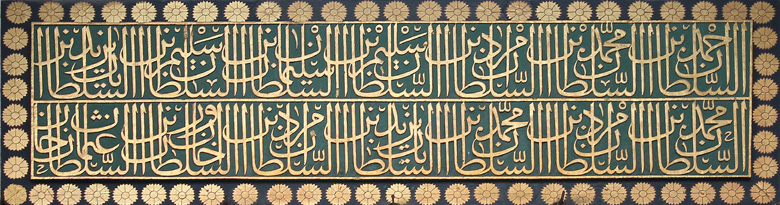 السلطان احمد بن السلطان محمد بن السلطان مراد بن السلطان سليم بن السلطان سليمان بن السلطان سليم بن السلطان بايزيد بن
السلطان محمد بن السلطان مراد بن السلطان محمد بن السلطان بايزيد بن السلطان مراد بن السلطان اورخان بن السلطان عثمان خان